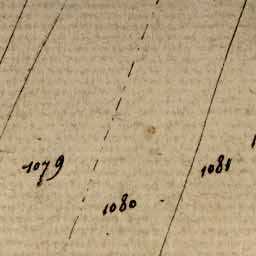 1079
1081
1080